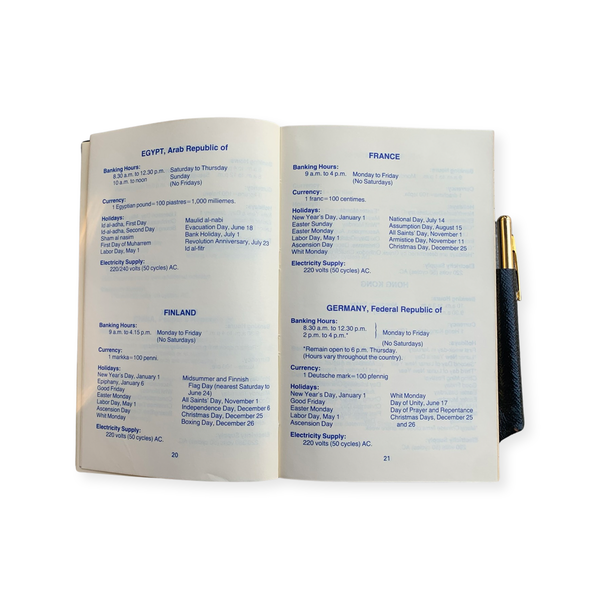 EGYPT, Arab Republic of
Banking Hours:
8.30 a.m. to 12.30 p.m. Saturday to Thursday
10 a.m. to noon Sunday
(No Fridays)
Currency:
1 Egyptian pound=100 piastres=1,000 milliemes.
Holidays:
Id al-adha, First Day
Id al-adha, Second Day
Sham al nasim
First Day of Muharrem
Labor Day, May 1
Maulid al-nabi
Evacuation Day, June 18
Bank Holiday, July 1
Revolution Anniversary, July 23
Id al-fitr
Electricity Supply:
220/240 volts (50 cycles) AC.
FINLAND
Banking Hours:
9 a.m. to 4.15 p.m. Monday to Friday
(No Saturdays)
Currency:
1 markka=100 penni.
Holidays:
New Year's Day, January 1
Epiphany, January 6
Good Friday
Easter Monday
Labor Day, May 1
Ascension Day
Whit Monday
Midsummer and Finnish
Flag Day (nearest Saturday to
June 24)
All Saints' Day, November 1
Independence Day, December 6
Christmas Day, December 25
Boxing Day, December 26
Electricity Supply:
220 volts (50 cycles) AC.
20
FRANCE
Banking Hours:
9 a.m. to 4 p.m. Monday to Friday
(No Saturdays)
Currency:
1 franc=100 centimes.
Holidays:
New Year's Day, January 1
Easter Sunday
Easter Monday
Labor Day, May 1
Ascension Day
Whit Monday
National Day, July 14
Assumption Day, August 15
All Saints' Day, November 1
Armistice Day, November 11
Christmas Day, December 25
Electricity Supply:
220 volts (50 cycles) AC.
GERMANY, Federal Republic of
Banking Hours:
8.30 a.m. to 12.30 p.m.
2 p.m. to 4 p.m.*
Monday to Friday
(No Saturdays)
*Remain open to 6 p.m. Thursday.
(Hours vary throughout the country).
Currency:
1 Deutsche mark=100 pfennig
Holidays:
New Year's Day, January 1
Good Friday
Easter Monday
Labor Day, May 1
Ascension Day
Whit Monday
Day of Unity, June 17
Day of Prayer and Repentance
Christmas Days, December 25
and 26
Electricity Supply:
220 volts (50 cycles) AC.
21